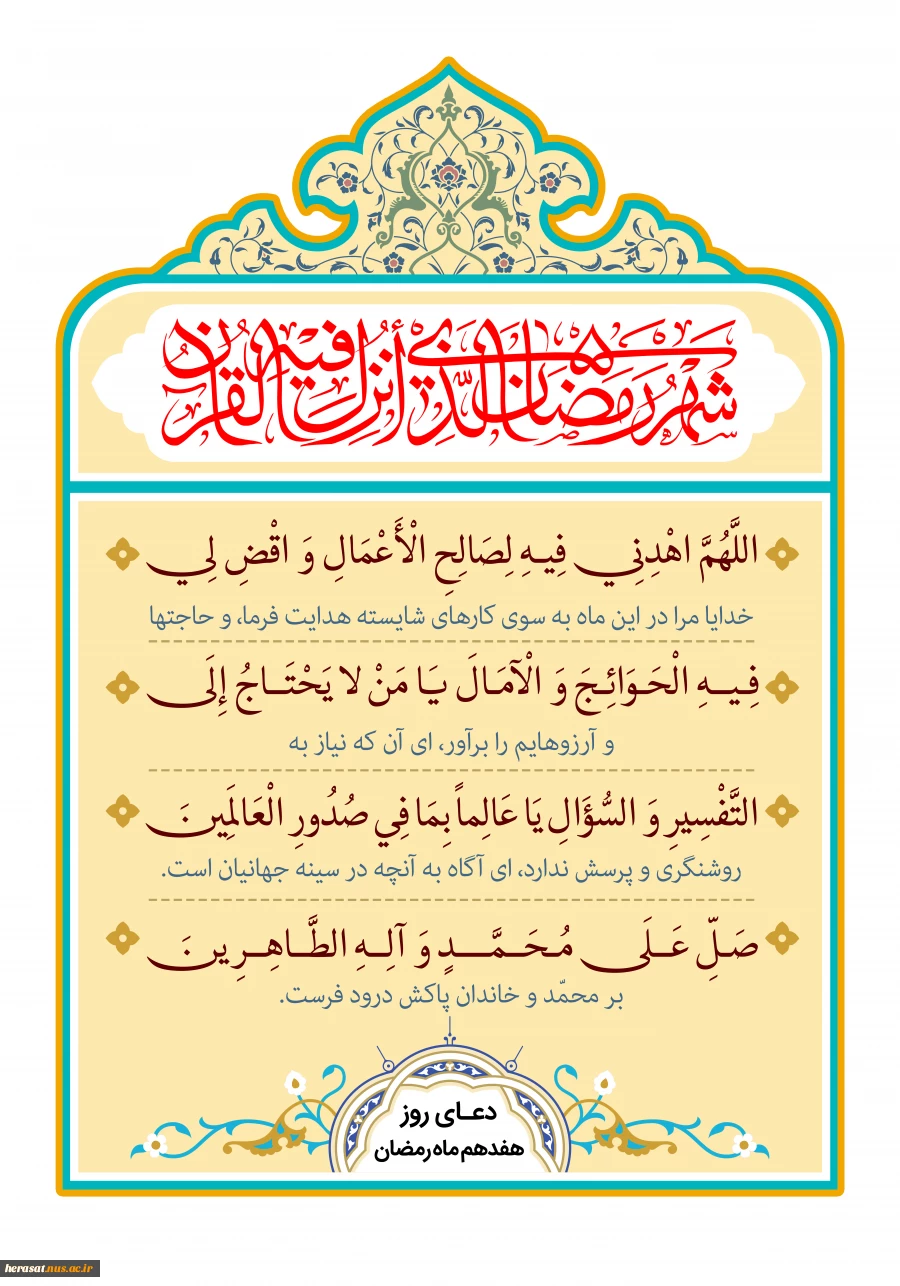 شَهْرُ رَمَضَانَ الَّذِي أُنْزِلَ فِيهِ الْقُرْآنُ
اللَّهُمَّ اهْدِنِي فِيهِ لِصَالِحِ الْأَعْمَالِ وَ اقْضِ لِي
خدایا مرا در این ماه به سوی کارهای شایسته هدایت فرما، و حاجتها
فِيهِ الْحَوَائِجَ وَ الْآمَالَ يَا مَنْ لا يَحْتَاجُ إِلَى
و آرزوهایم را برآور، ای آن که نیاز به
التَّفْسِيرِ وَ السُّؤَالِ يَا عَالِماً بِمَا فِي صُدُورِ الْعَالَمِينَ
روشنگری و پرسش ندارد، ای آگاه به آنچه در سینه جهانیان است.
صَلِّ عَلَى مُحَمَّدٍ وَ آلِهِ الطَّاهِرِينَ
بر محمّد و خاندان پاکش درود فرست.
دعای روز
هفدهم ماه رمضان
herasat.nus.ac.ir